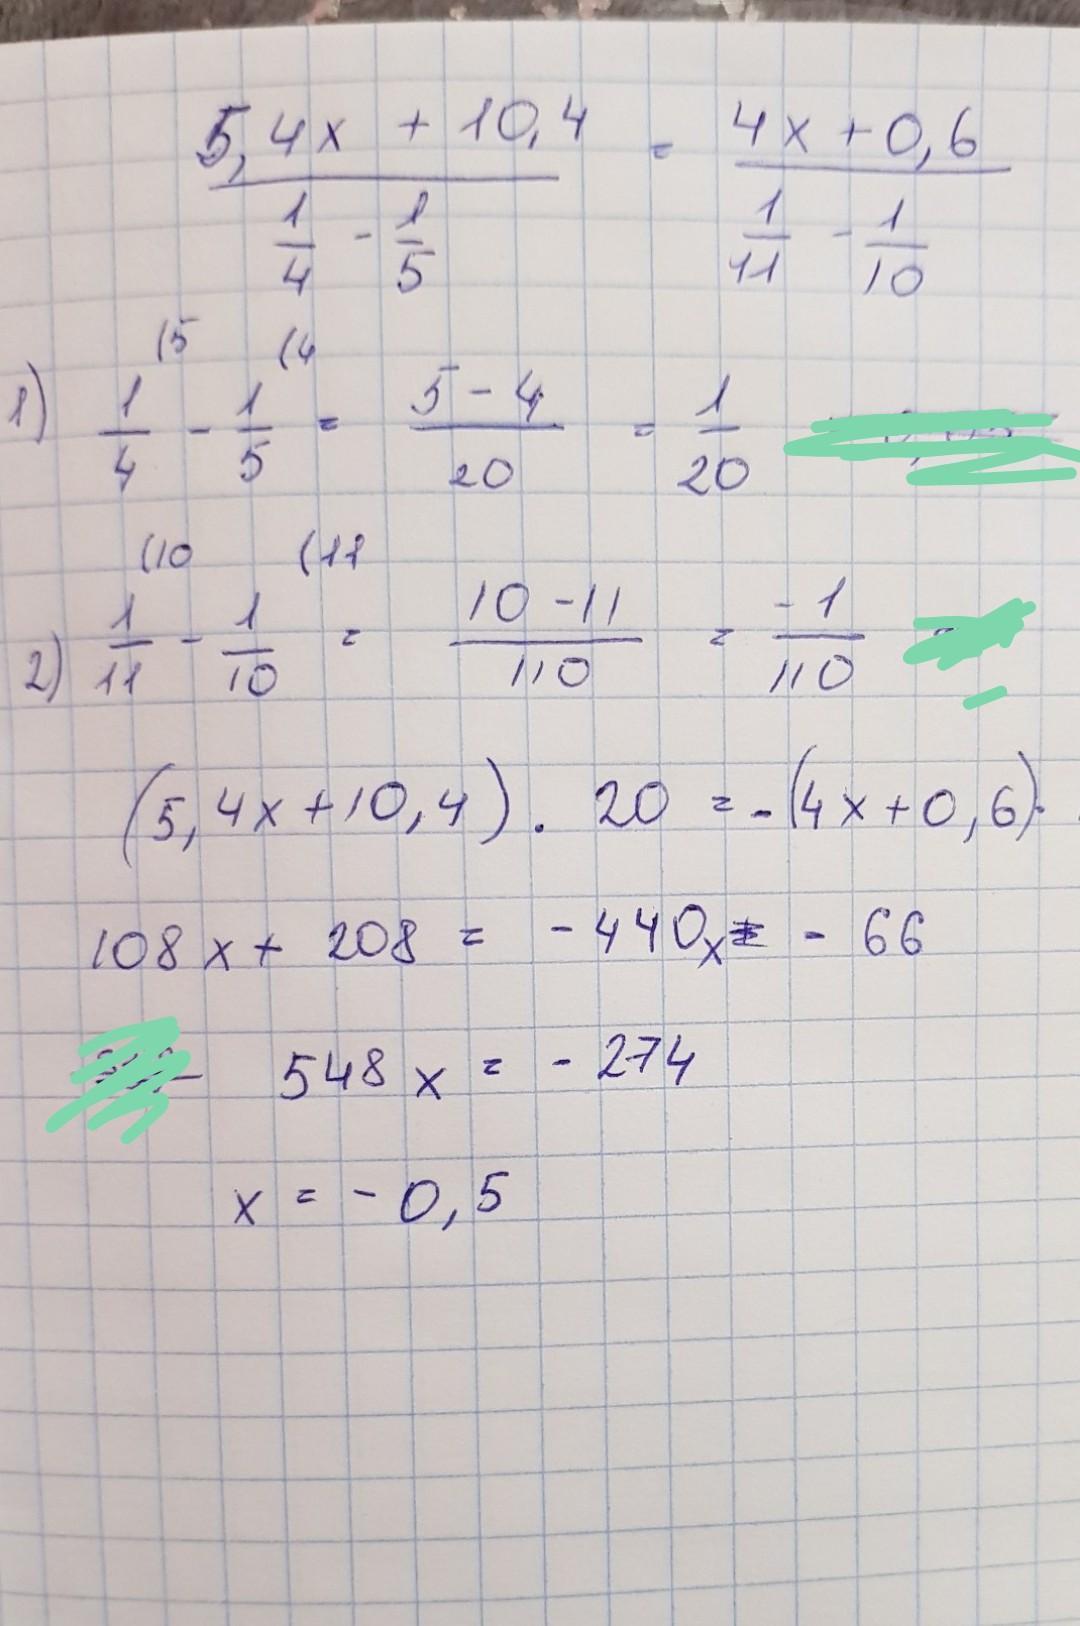 5,4x + 10,4 = 4x + 0,6
1/4 - 1/5   1/11 - 1/10
(5 (4
1) 1/4 - 1/5 = 5 - 4/20 = 1/20
(10 (11
2) 1/11 - 1/10 = 10 - 11/110 = -1/110
(5,4x + 10,4) · 20 = -(4x + 0,6) ·
108x + 208 = -440x - 66
548x = -274
x = -0,5